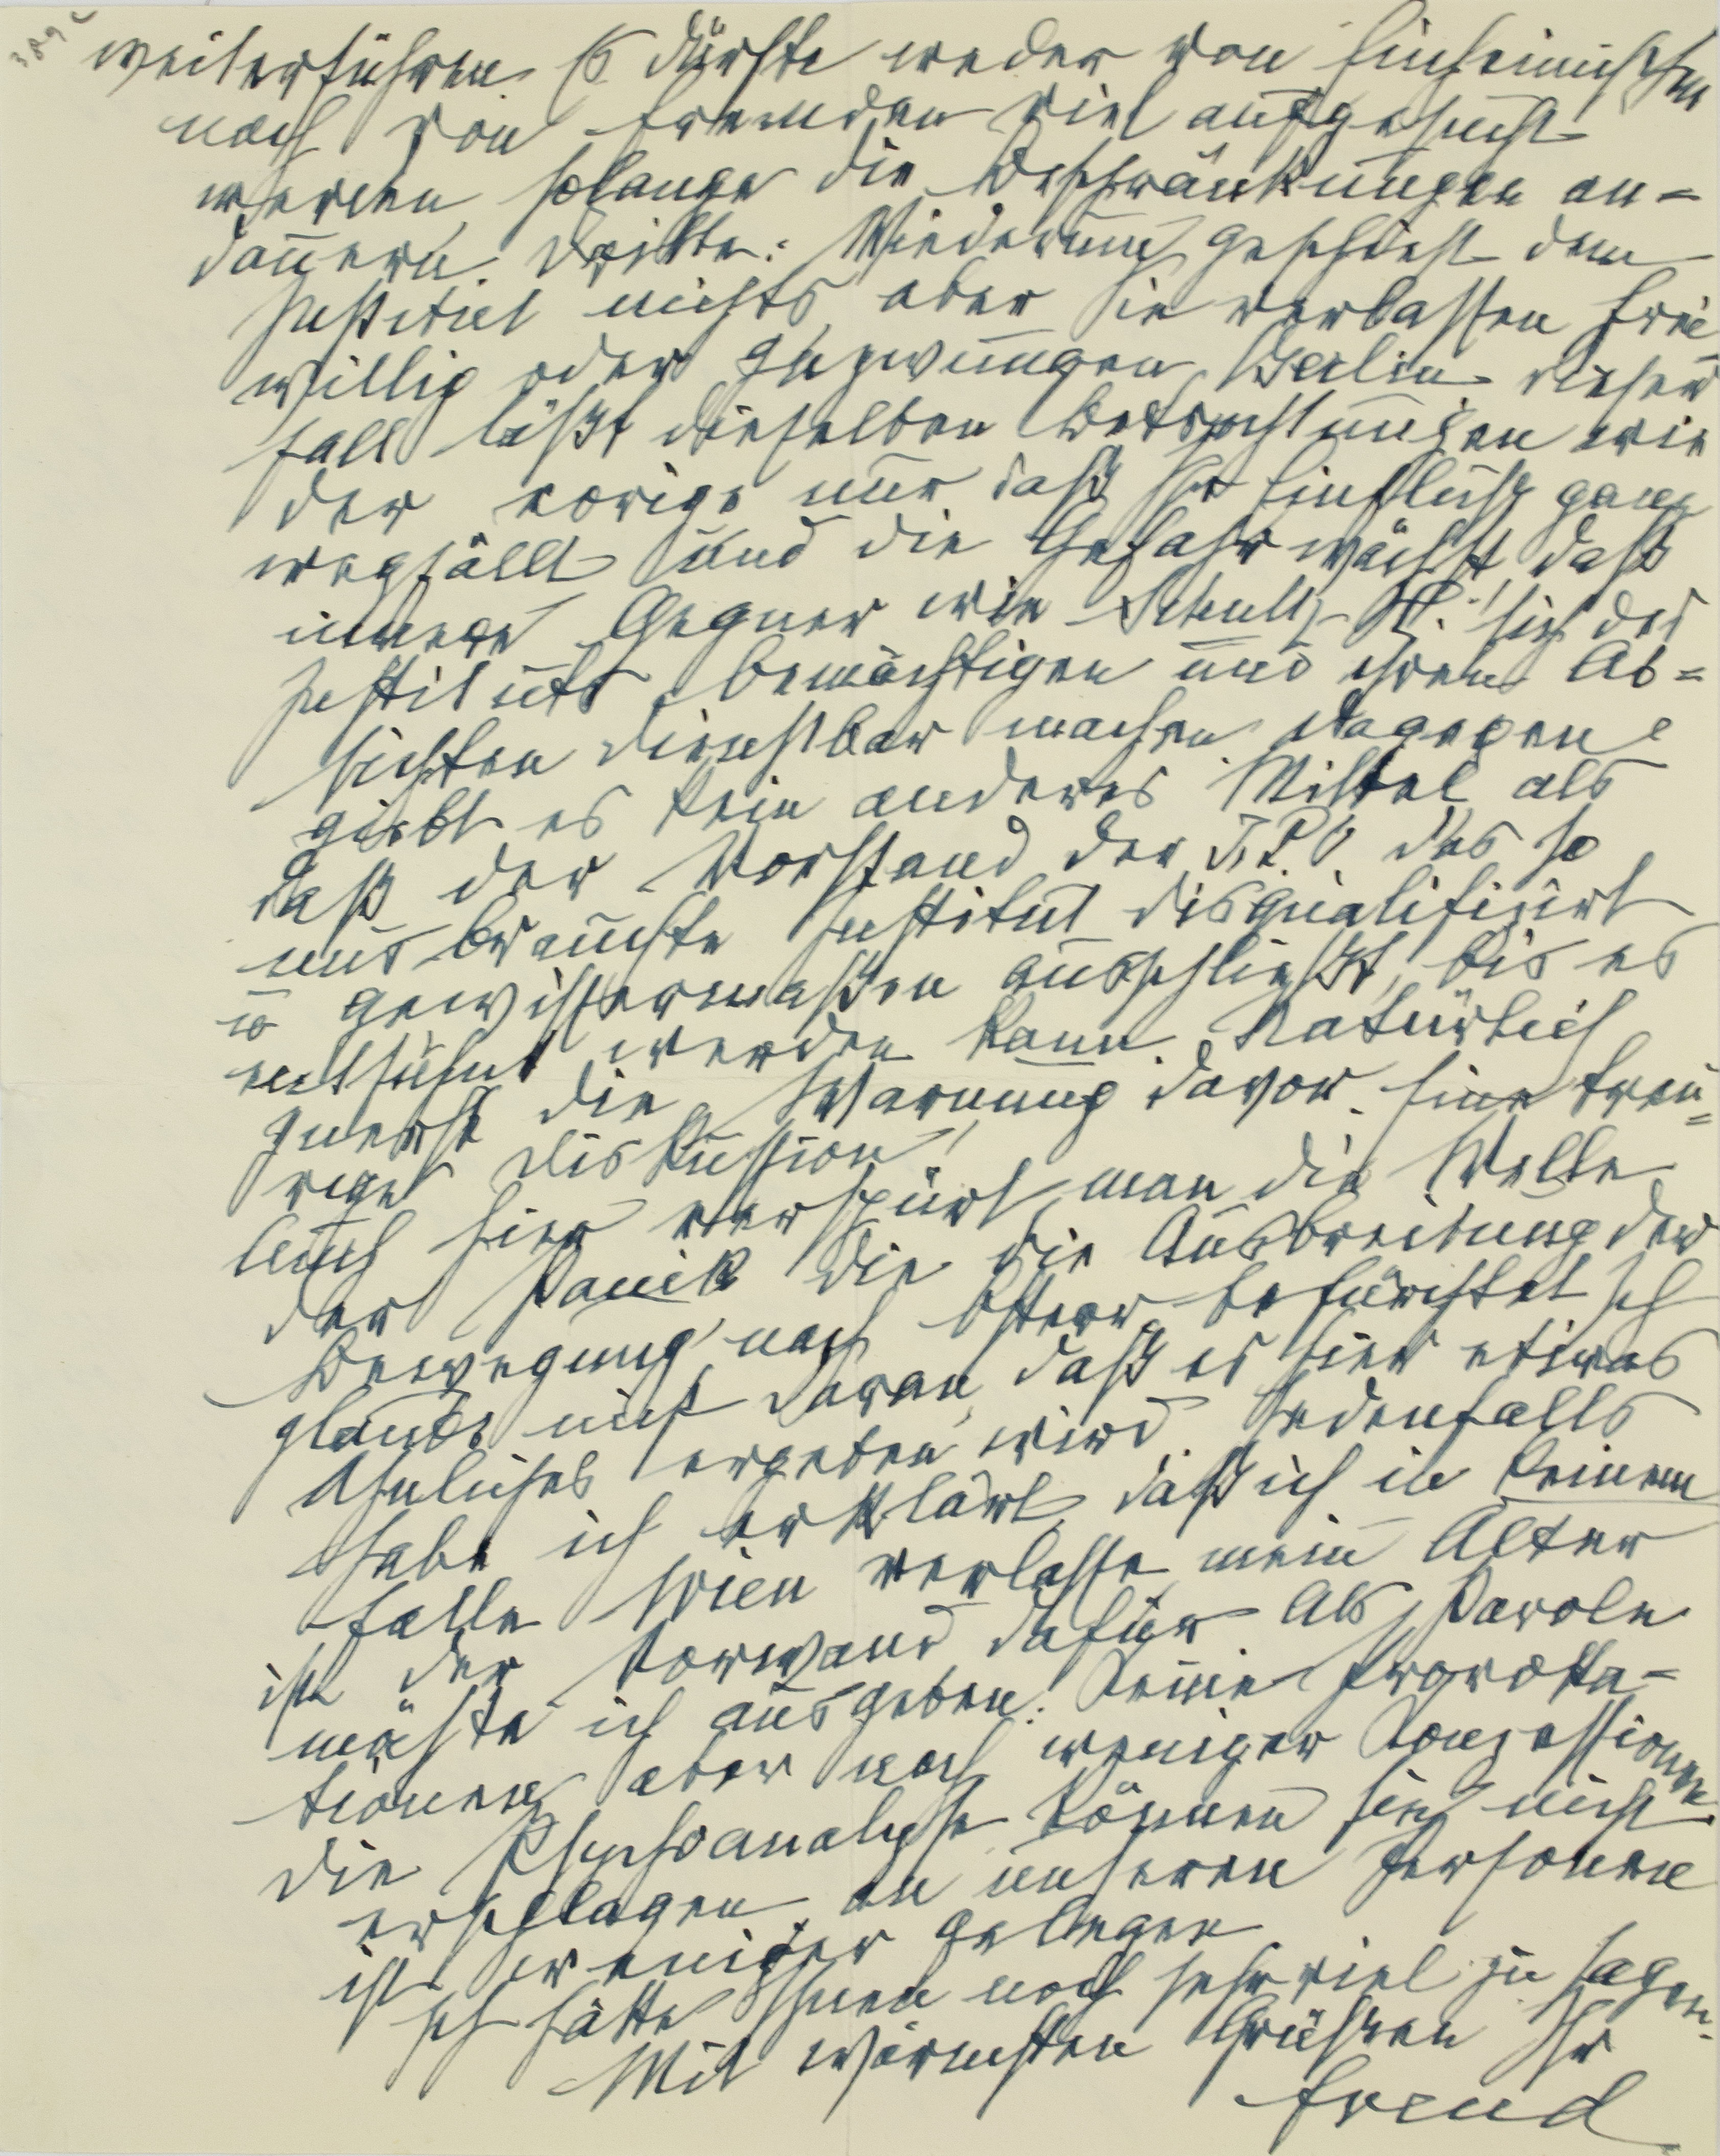 weiterführen. Es dürfte weder von Einheimischen
noch von Fremden viel aufgesucht
werden, solange die Beschränkungen an-
dauern. Dritte: Wiederum geschieht dem
Institut nichts, aber Sie verlassen frei
willig oder gezwungen Berlin. Dieser
Fall läßt dieselben Betrachtungen wie
der vorige nur daß Ihr Einfluß ganz
wegfällt und die Gefahr wächst, daß
innere Gegner wie Schultz-H. sich des
Instituts bemächtigen und ihren Ab-
sichten dienstbar machen. Dagegen
giebt es kein anderes Mittel als
daß der Vorstand der I.P.V. das so
mißbrauchte Institut disqualifizirt
u gewissermaßen ausschließt, bis es
entsühnt werden kann. Natürlich
zuerst die Warnung davor. Eine trau-
rige Diskussion!
Auch hier verspürt man die Welle
der Panik die die Ausbreitung der
Bewegung nach Österr befürchtet. Ich
glaube nicht daran, daß es hier etwas
Ähnliches ergeben wird. Jedenfalls
habe ich erklärt, daß ich in keinem
Falle Wien verlasse, mein Alter
ist der Vorwand dafür. Als Parole
möchte ich ausgeben: Keine Provoka-
tionen, aber noch weniger Konzessionen.
Die Psychoanalyse können sie nicht
erschlagen, an unseren Personen
ist weniger gelegen.
Ich hätte Ihnen noch sehr viel zu sagen.
Mit wärmsten Grüßen Ihr
Freud